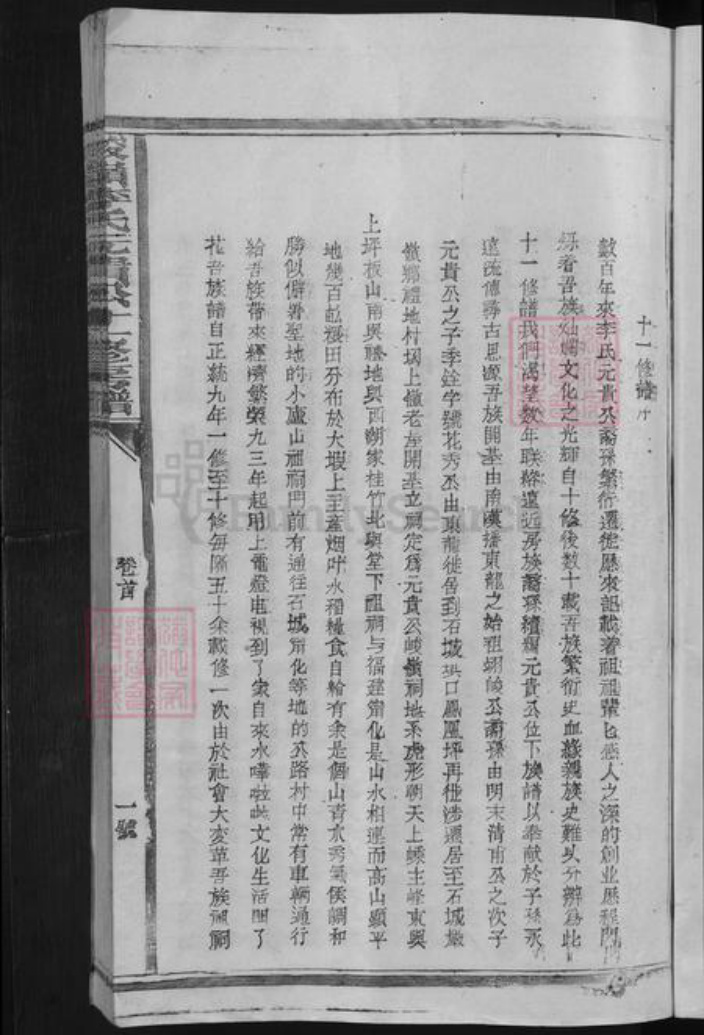 十一修譜序
數百年來李氏元貴公裔孫繁衍遷徙歷來記載著祖祖輩匕感人之深的創业歷程閃
爍着吾族灿爛文化之光輝自十修後数十載吾族繁衍史血緣親族史難以分辨為此
十一修譜我們渴望数年联絡遠近房族裔孫續輯元貴公位下族譜以奉献於子孫永
遠流傳尋古思源吾族開基由南漢播東龍之始祖翊崚公裔孫由明末清甫公之次子
元貴公之子季銓字號花秀公由東龍徙居到石城垻口鳳凰坪再徙涉遷居至石城嶽
嶺鄉禮地村垇上嶺老屋開基立祠定爲元貴公崚嶺祠地系虎形朝天上嵊主峰東與
上坪板山南與勝地與西湖家桂竹北與堂下祖祠与福建甯化是山水相連而高山顯平
地幾百畝糧田分布於大塅上主產烟叶水稻糧食自給有余是個山青水秀氣侯調和
勝似僻暑聖地的小廬山祖祠門前有通往石城甯化等地的公路村中常有車輛通行
給吾族帶來經濟繁榮九三年起用上電燈电視到了家自來水嘩啦啦文化生活開了
花吾族譜自正統九年一修至十修每隔五十余載修一次由於社會大变革吾族祖祠
崚嶺李氏元貴公十一修族譜
卷首
一號
FamilySearch